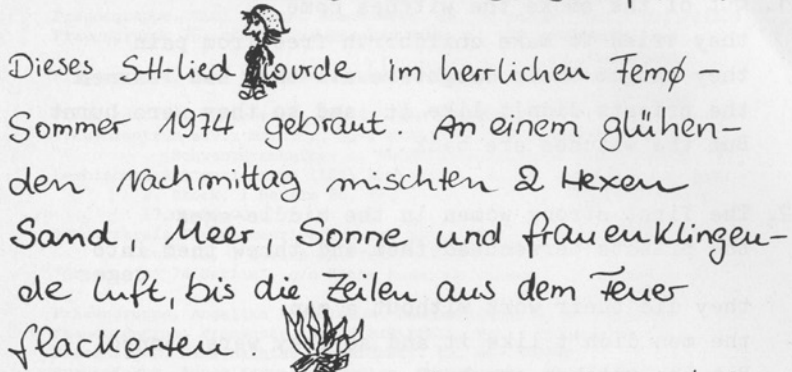 Dieses SH-lied wurde im herrlichen Femø-
Sommer 1977 gebraut. An einem glühen-
den Nachmittag mischten 2 Hexen
Sand, Meer, Sonne und frauenklingen-
de Luft, bis die Zeilen aus dem Feuer
flackerten.